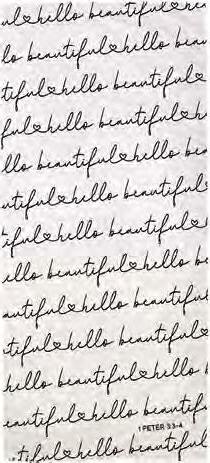 ul♡hello beautiful♡he
lo beautiful♡hello beau
tiful♡hello beautiful
ful♡hello beautiful♡h
llo beautiful♡hello b
utiful♡hello beautiful
iful♡hello beautiful♡
ello beautiful♡hello b
autiful♡hello beautifu
tiful♡hello beautiful♡
hello beautiful♡hello b
eautiful♡hello beautif
1 PETER 3:3-4
tiful♡hello beautiful